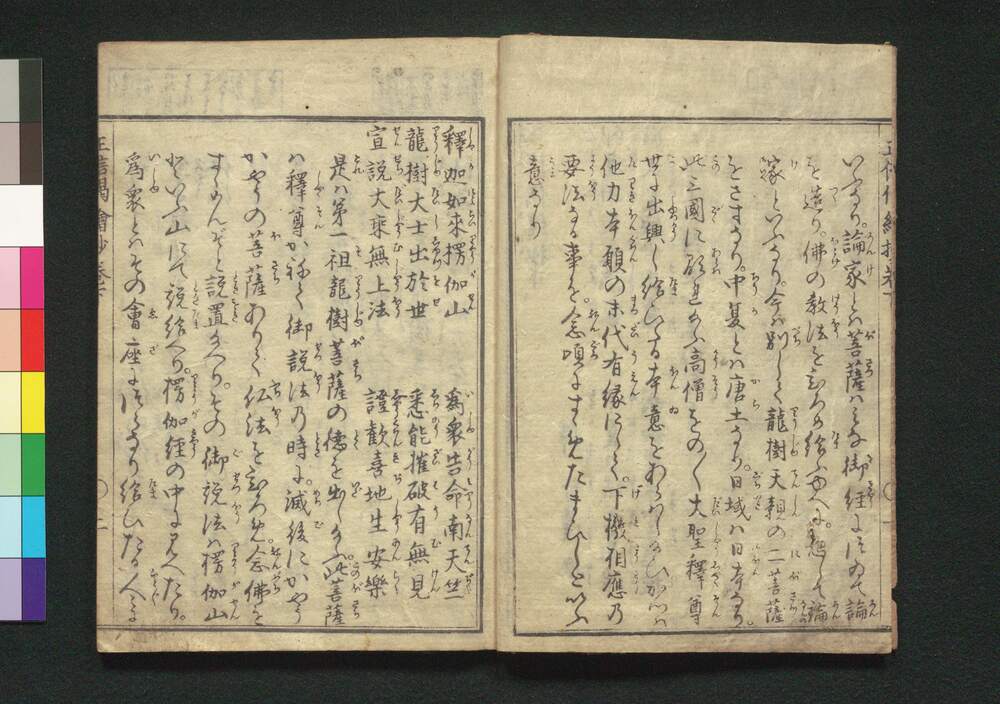 いふなり。論家とは菩薩はみな御經によつて論
を造り。佛の教法をひろめ給ふゆへに。惣して論
家といふなり。今は別して龍樹天親の二菩薩
をさすなり。中夏とは唐土なり。日域は日本なり。
此三國に出たまふ高僧をのく大聖釋尊
世に出興し給いたる本意をあらはしたまひ
他力本願の末代有縁にして。下機相應乃
要法なる事を。念頃にすゝめたまひしといふ
意なり
釋迦如來楞伽山 爲衆告命南天竺
龍樹大士出於世 悉能摧破有無見
宣說大乘無上法 證歡喜地生安樂
是は第一祖龍樹菩薩の德を出したまふ。此菩薩
は釋尊かねて御說法乃時に。滅後にかやう
かやうの菩薩ありて仏法をひろめ。念佛を
すゝめんぞと說置たまへり。その御說法は楞伽山
といふ山にて說給へり。楞伽經の中に見へたり。
爲衆とはその會座につらなり給ひたる人々